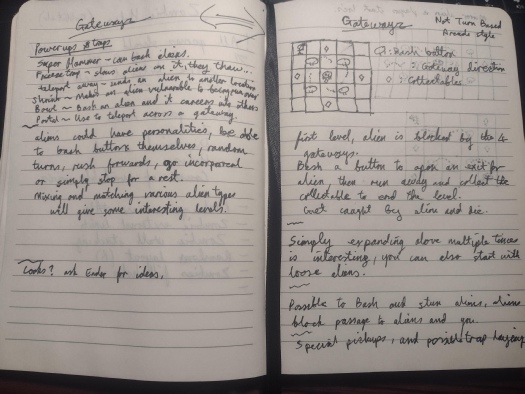 Gateways
Power ups & traps
Super Hammer ~ can bash aliens.
Freeze trap ~ slows aliens on it, they thaw...
teleport away ~ sends an alien to another location
Shrink ~ Makes an alien vulnerable to being run over
Bowl ~ Bash an alien and it careens into others
Portal ~ Use to teleport across a gateway.
aliens could have personalities, be able
to bash buttons themselves, random
turns, rush forwards, go incorporeal
or simply stop for a rest.
Mixing and matching various alien types
will give some interesting levels.
Looks? ask for ideas.
Gateways
Not Turn Based
Arcade style
: Bash button
: Gateway direction
: Collectables
first level, alien is blocked by the 4
gateways.
Bash a button to open an exit for
alien then run away and collect the
collectable to end the level.
Get caught by alien and die.
Simply expanding above multiple times
is interesting, you can also start with
loose aliens.
Possible to Bash and stun aliens,
block passage to aliens and you.
Special pickups, and possible trap laying